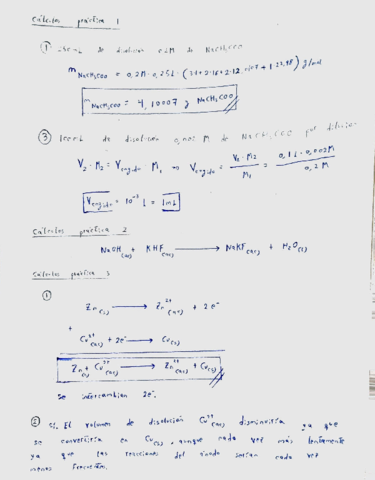 Cálculos práctica 1
① 250mL de disolución 0,2M de NaCH3COO
mNaCH3COO = 0,2M · 0,25L · (3·1 + 2·16 + 2·12,007 + 1·22,98) g/mol
mNaCH3COO = 4,10007 g NaCH3COO
③ 100mL de disolución M de NaCH3COO por dilución
V2 · M2 = Vcogido · M1 → Vcogido = V2 · M2 / M1 = 0,1L · 0,002M / 0,2M
Vcogido = 10⁻³ L = 1mL
Cálculos práctica 2
NaOH(ac) + KHF(ac) → NaKF(ac) + H2O(l)
Cálculos práctica 3
①
Zn(s) → Zn²⁺(ac) + 2e⁻
+
Cu²⁺(ac) + 2e⁻ → Cu(s)
Zn(s) + Cu²⁺(ac) → Zn²⁺(ac) + Cu(s)
Se intercambian 2e⁻.
② Sí. El volumen de disolución Cu²⁺(ac) disminuiría ya que
se convertiría en Cu(s), aunque cada vez más lentamente
ya que las reacciones del ánodo serían cada vez
menos frecuentes.